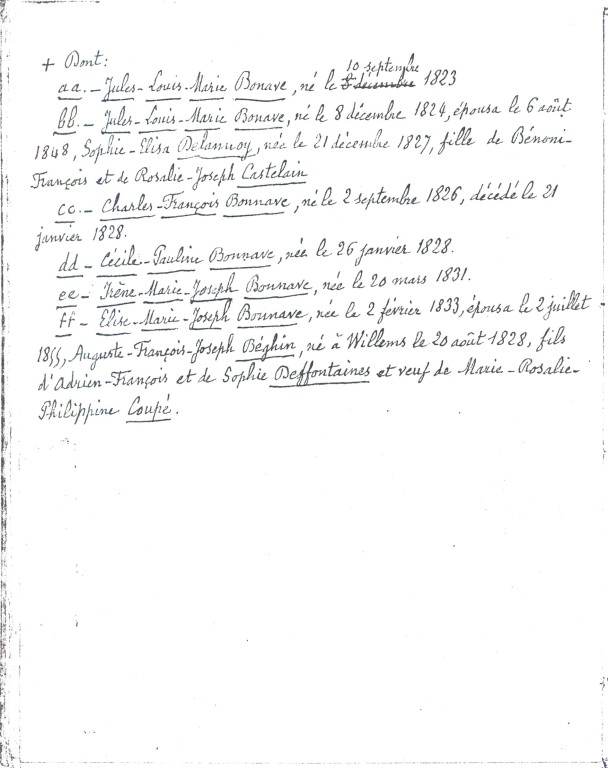 + Dont:
aa. - Jules-Louis-Marie Bonave, né le 10 septembre 1823
bb. - Jules-Louis-Marie Bonave, né le 8 décembre 1824, épousa le 6 août
1848, Sophie-Elisa Delannoy, née le 21 décembre 1827, fille de Bénoni-
François et de Rosalie-Joseph Castelain
cc. - Charles-François Bonnave, né le 2 septembre 1826, décédé le 21
janvier 1828.
dd - Cécile-Pauline Bonnave, née le 26 janvier 1828.
ee - Irène-Marie-Joseph Bonnave, née le 20 mars 1831.
ff - Elise-Marie-Joseph Bonnave, née le 2 février 1833, épousa le 2 juillet
1855, Auguste-François-Joseph Béghin, né à Willems le 20 août 1828, fils
d'Adrien-François et de Sophie Deffontaines et veuf de Marie-Rosalie-
Philippine Coupé.